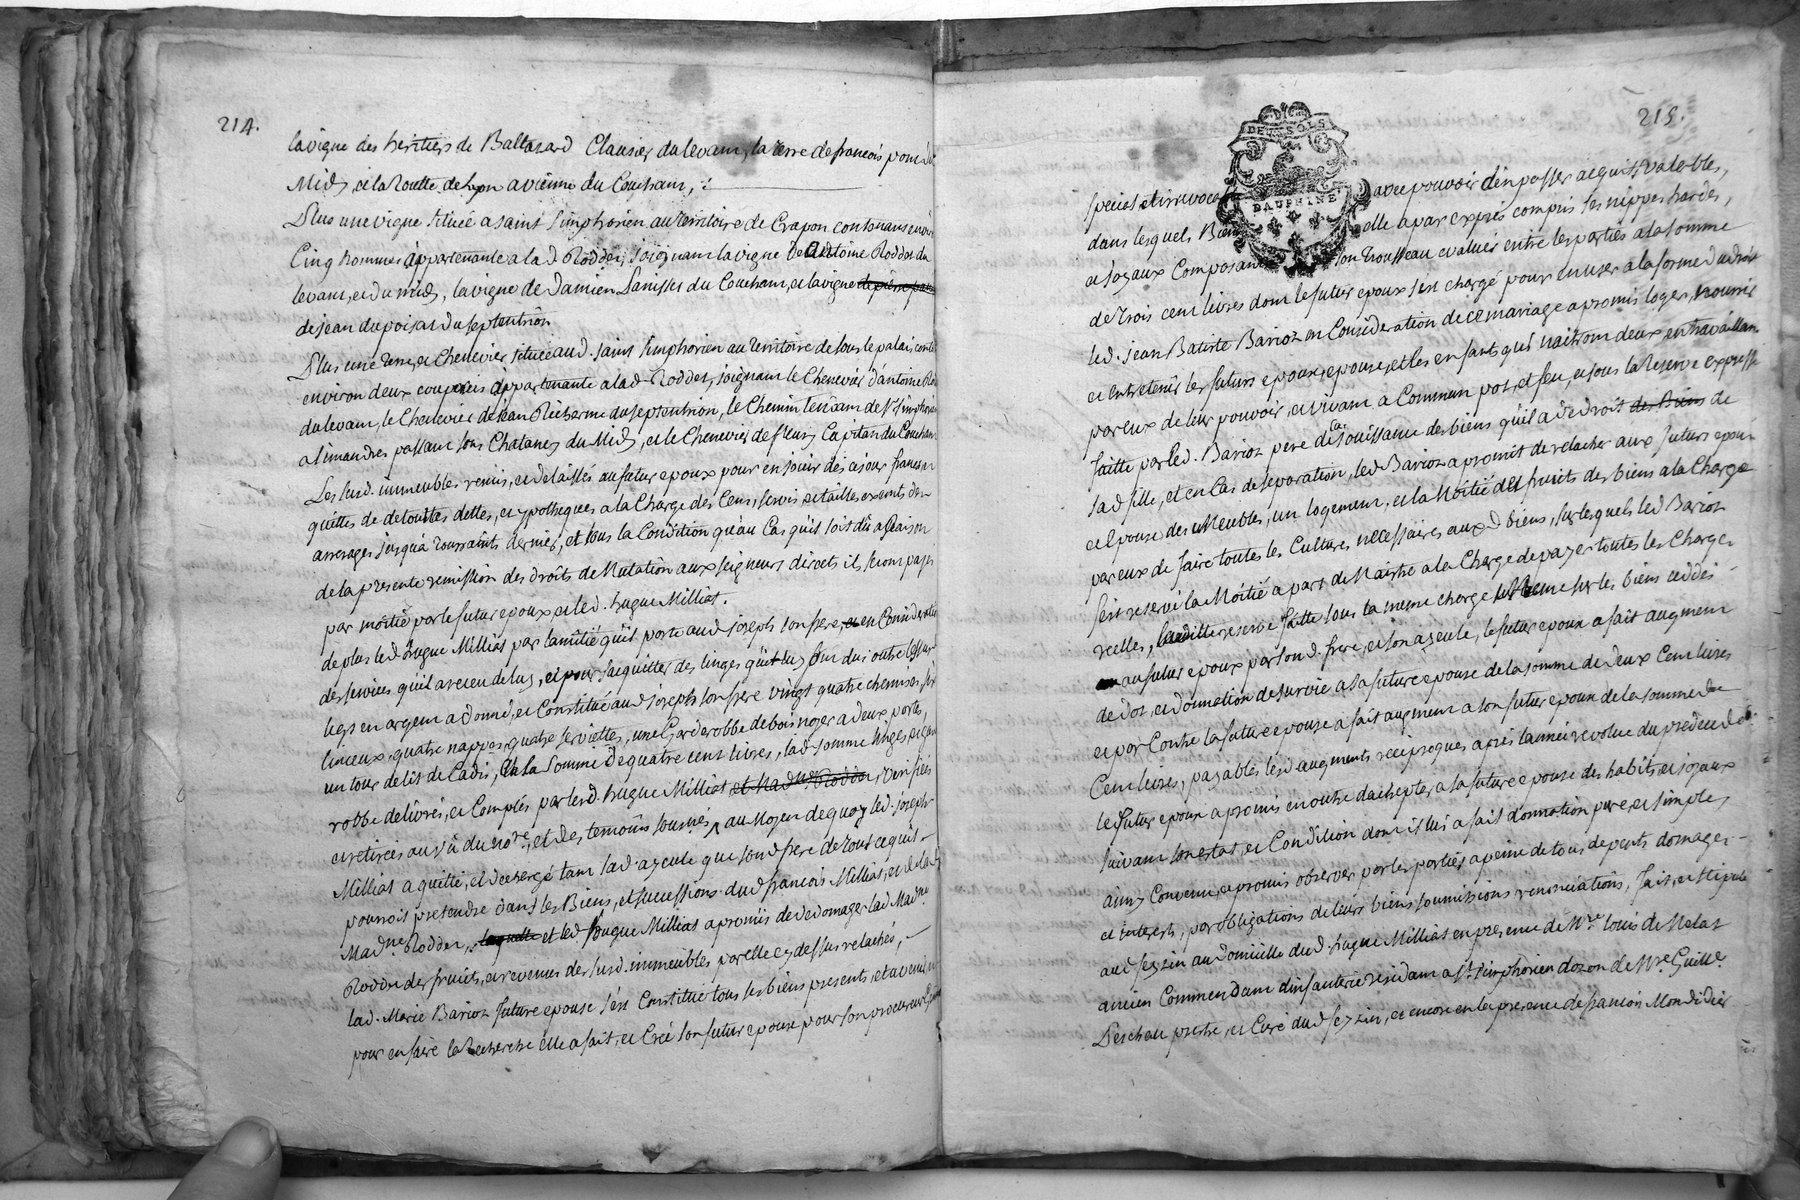 214.
la vigne des heritiers de Baltazard Clausier du levant, la terre de francois pom du
Midy, et la Routte de Lyon a vienne du Couchant, :
Plus une vigne situeé a saint simphorien au territoire de Crapon contenant environ
Cinq hommeés appartenante a la d Roddet, joignant la vigne de antoine Roddet du
levant, et du midy, la vigne de Damien du Couchant, et la vigne
de jean dupoisat du septentrion
Plus une terre, et Chenevier situeé aud. saint simphorien au territoire de sous le palais conte
environ deux coupeés appartenante a lad Roddet, joignant le Chenevier d'antoine Ro
du levant, le Chenevier de jean Richerme du septentrion, le Chemin tendant de st simphorien
a simandres passant sous Chatanay du Midy, et le Chenevier de fleury Capitan du Couchant
Les susd. immeubles remis, et delaissés au futur epoux pour en jouir dés ce jour francs et
quittes de de touttes dettes, et ypotheques a la Charge des Cens, servis et tailles exempts d'ar
arrerages jusqu'a toussaints dernier, et sous la Condition qu'au Cas qu'il soit dû a Raison
de la presente remission des droits de Mutation aux seigneurs directs ils seront payés
par moitié par le futur epoux et led. hugue Milliat.
de plus led hugue Milliat par l'amitié qu'il porte aud joseph son frere, et en Consideration
des services qu'il a receu de luy, et pour s'acquitter des linges qui luy sont dus outre le susd
legs en argent a donné, et Constitué aud joseph son frere vingt quatre chemises, six
linceux, quatre nappes, quatre serviettes, une Garderobbe de bois noyer a deux portes,
un tour de lit de Cadis, et la somme de quatre cent livres, lad somme linges, et gard
robbe delivrés, et Comptés par led. hugue Milliat et Mad.ne Roddet, verifiés
et retirés au vû du no.re, et des temoins sousnés, au Moyen de quoy led. joseph
Milliat a quitté, et decerge tant sad. ayeule que son d frere de tout ce qu'il
pourroit pretendre dans les Biens, et successions dud francois Milliat, et de lad
Mad.ne Roddet, laquelle et led hugue Milliat a promis de dedomager lad Mad.ne
Roddet des fruits, et revenus des susd. immeubles par elle cy dessus relachés,
lad. Marie Barioz future epouse s'est Constitué tous ses biens presents, et avenir
pour en faire la Recherche elle a fait, et Creé son futur epoux pour son procureur
215.
DEUX SOLS
DAUPHINE
special et irrevocable avec pouvoir d'en passer acquits valables,
dans lesquels Biens elle a par exprés compris ses nippes hardes,
et joyaux Composant son trousseau evalués entre les parties a la somme
de trois cent livres dont le futur epoux s'est chargé pour en user a la forme du droit
led. jean Batiste Barioz en Consideration de ce mariage a promis loger, nourrir
et entretenir les futurs epoux, epouse, et les enfants qui naitront deux en travaillant
par eux de leur pouvoir, et vivant a Commun pot, et feu, et sous la Reserve expresse
faitte par led. Barioz pere de la jouissance des biens qu'il a de droit des Biens de
sa d fille, et en Cas de separation, led Barioz a promit de relacher aux futurs epoux
et epouse des Meubles, un logement, et la Moitié des fruits des biens a la Charge
par eux de faire toutes les Cultures necessaires aux d biens, sur lesquels led Barioz
s'est reservé la Moitié a part de Maistre a la Charge de payer toutes les Charges
reelles, laditte reserve faitte sous la meme charge sur les biens ceddés
au futur epoux par son d. frere, et son ayeule, le futur epoux a fait augment
de dot, et donnation de survie a sa future epouse de la somme de deux Cent livres
et par Contre la future epouse a fait augment a son futur epoux de la somme de
Cent livres, payables lesd augments reciproques aprés l'anneé revolue du predecedé
le futur epoux a promis en outre d'achepter a sa future epouse des habits, et joyaux
suivant son estat, et Condition dont il lui a fait donnation pure, et simple,
ainsy Convenu, et promis observer par les parties a peine de tous depents domages
et interests, par obligations de leurs biens soumissions renonciations, fait, et stipulé
aud seyzin au domicille dud. hugue Milliat en presence de Mre louis de Melat
ancien Commendant d'infanterie residant a st. simphorien dozon de Mre. Guille.
Perchau pretre, et Curé dud seyzin, et encore en la presence de francois Mondidier